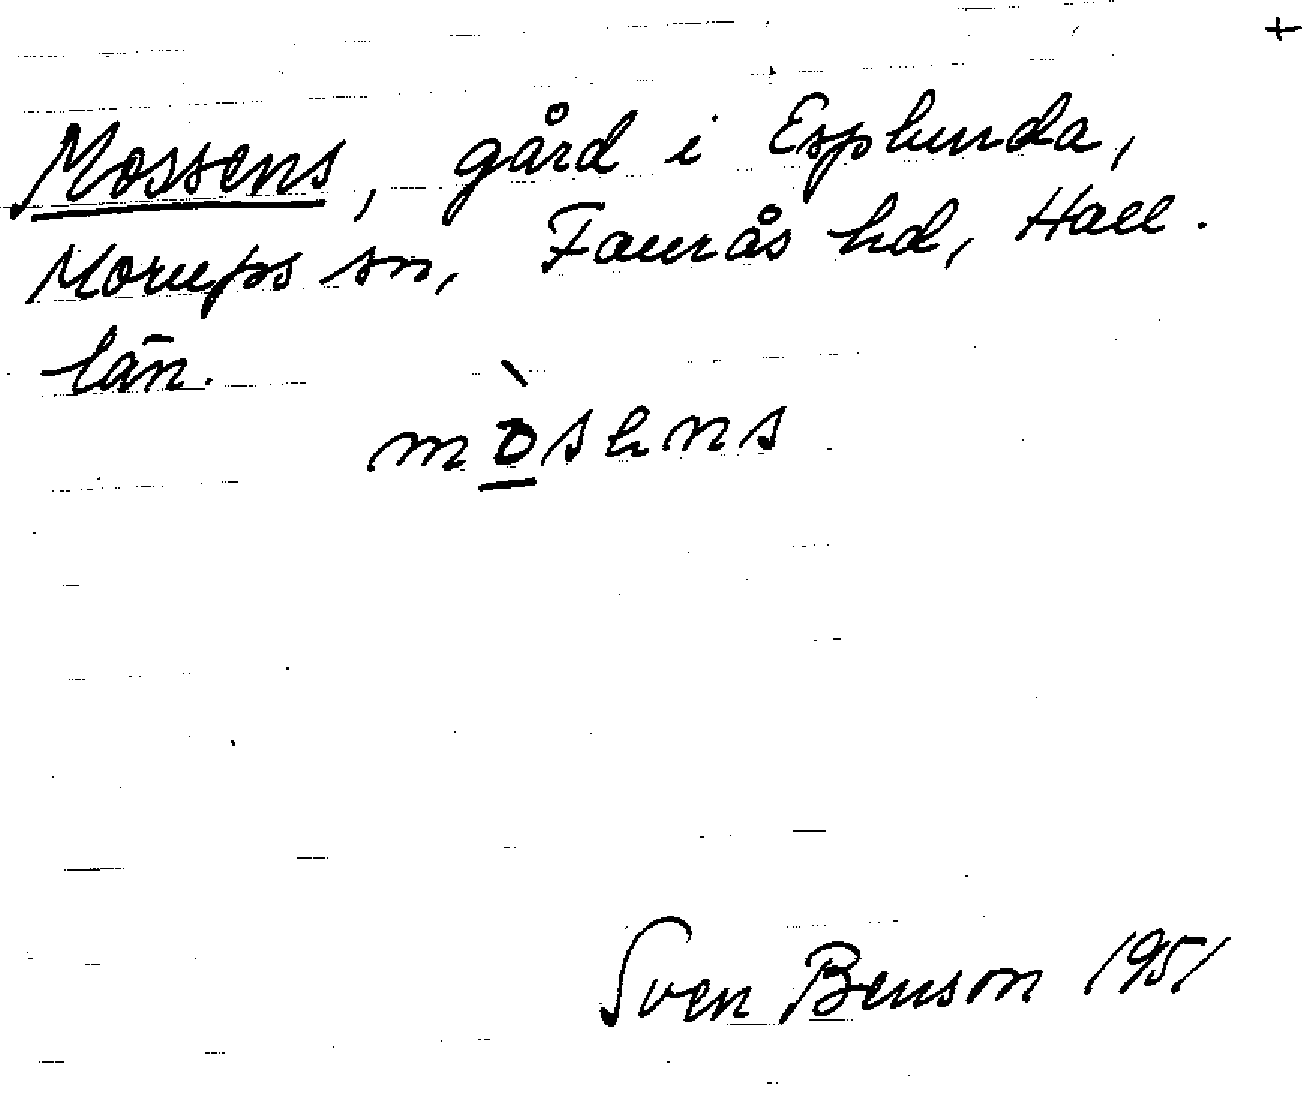 +
Mossens, gård i Esplunda,
Morups sn, Faurås hd, Hall.
län.
mòsens
Sven Benson 1951